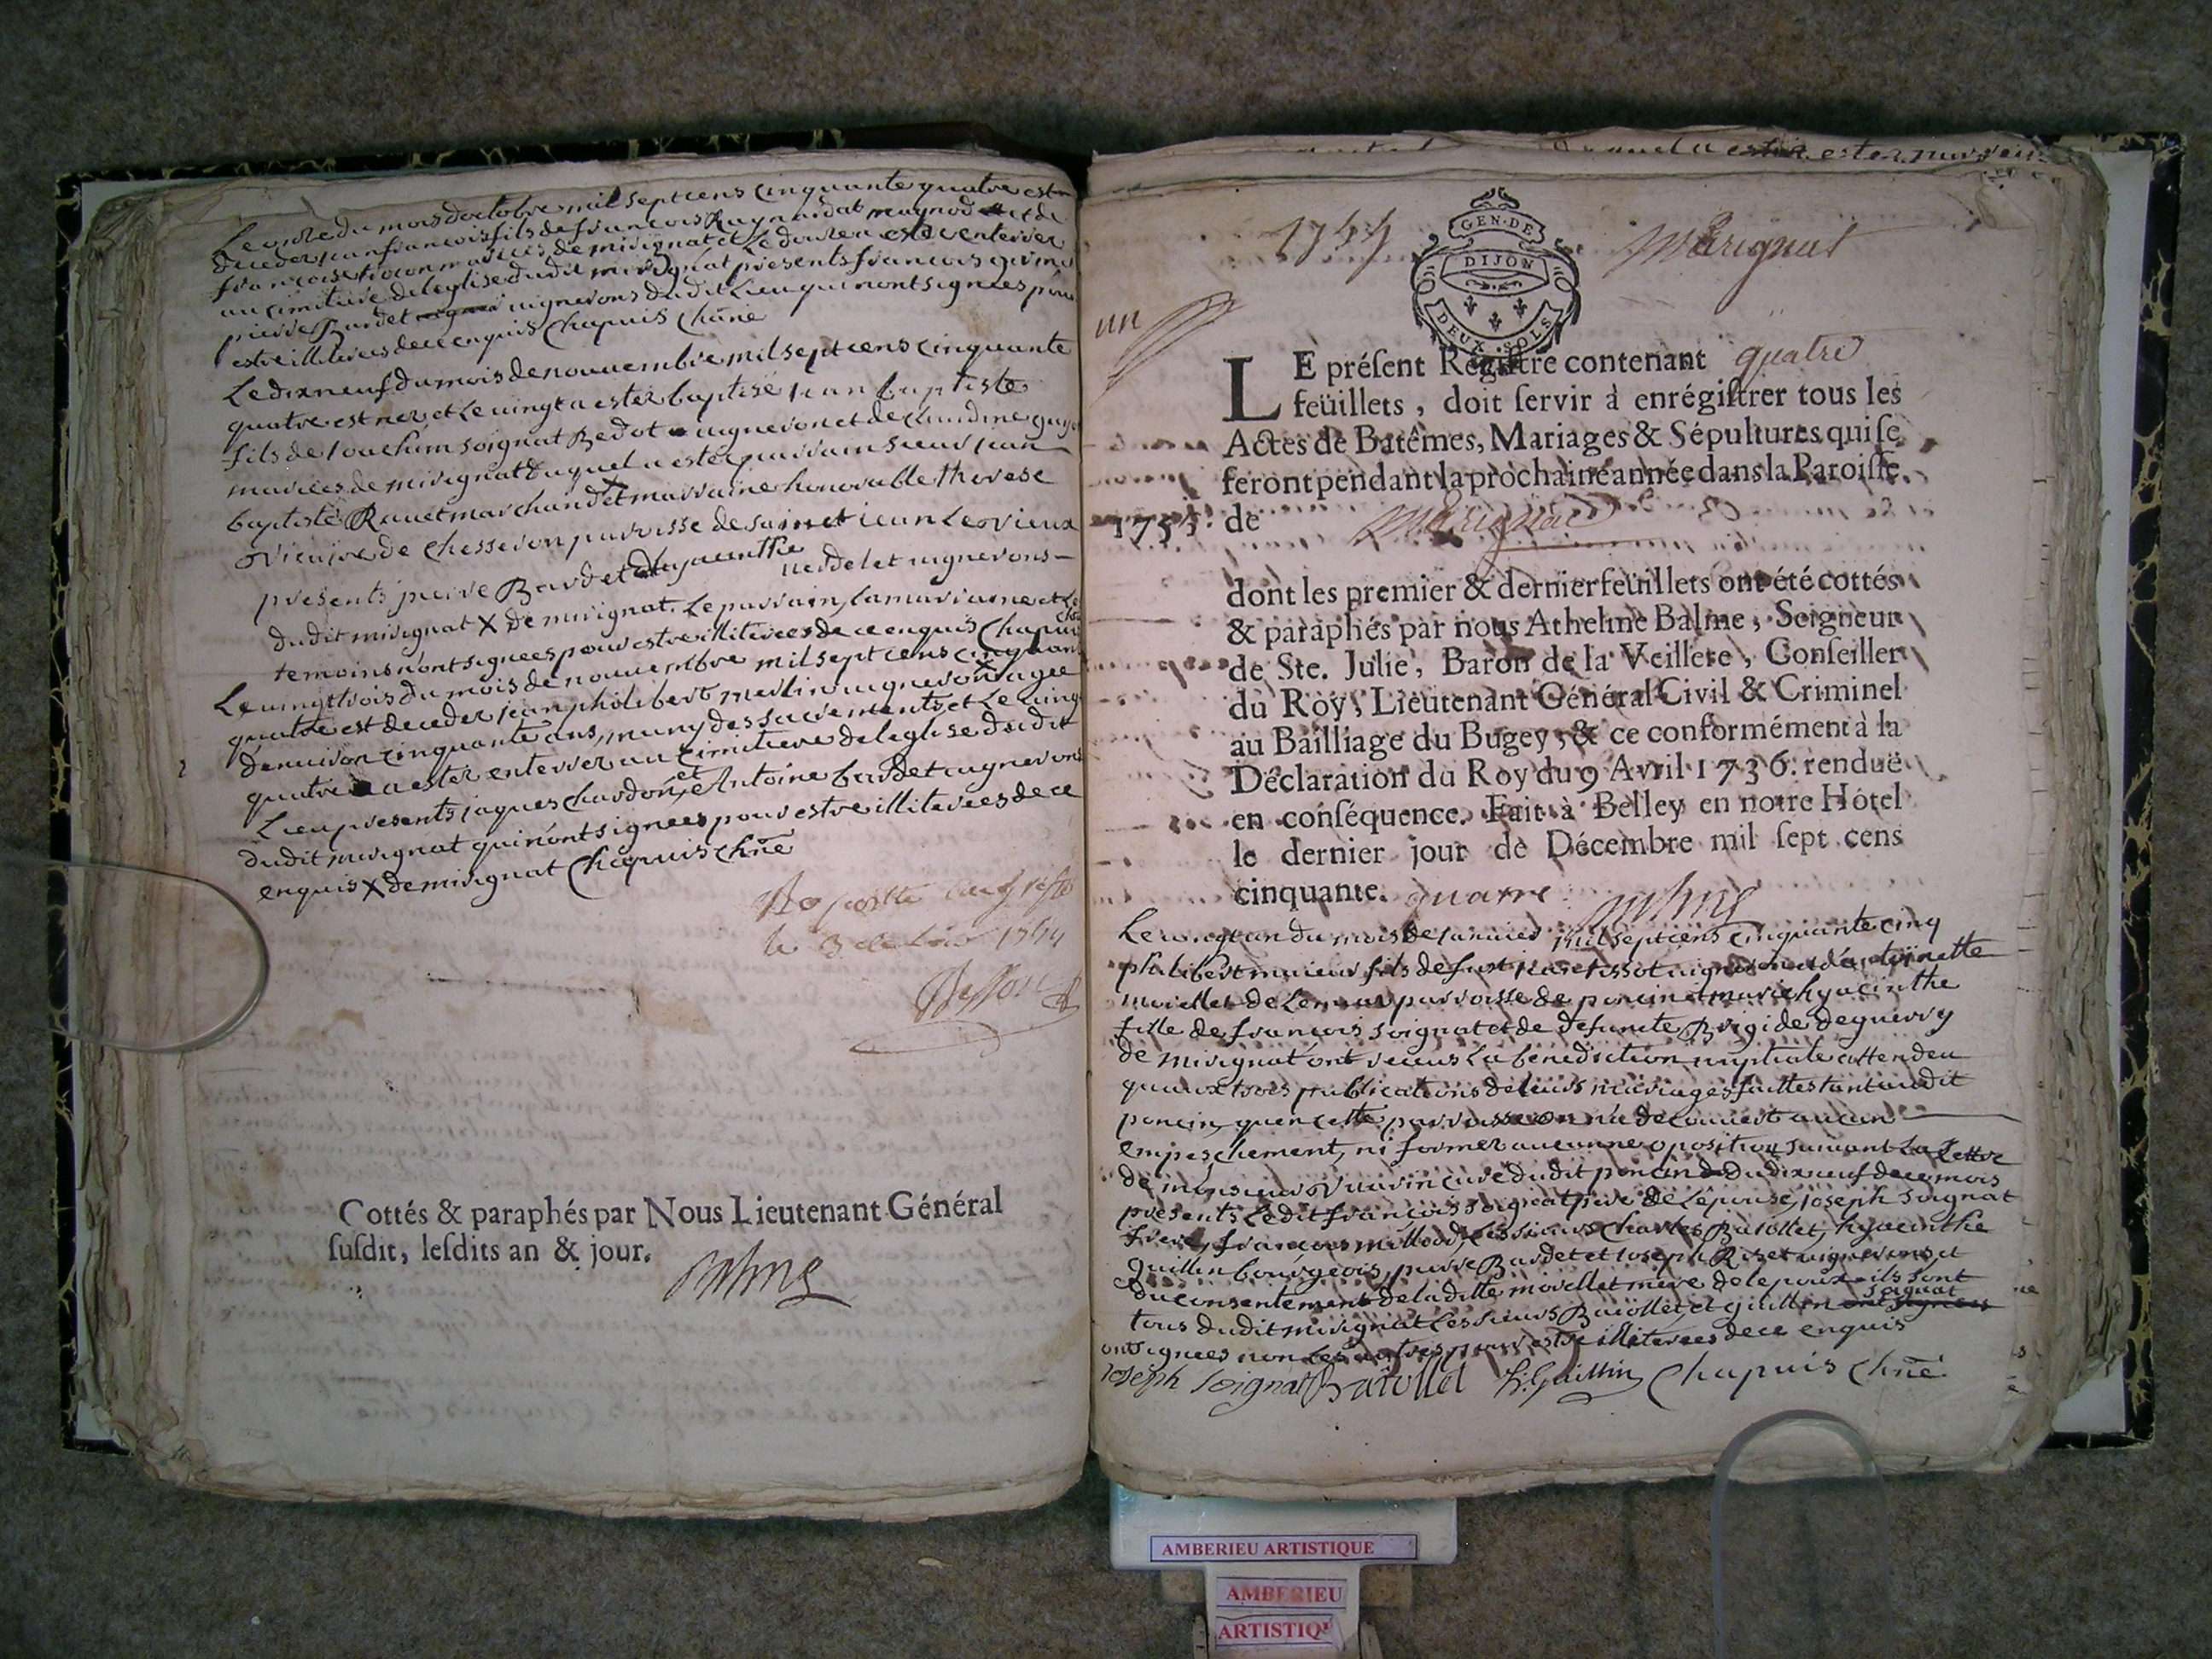 Le onze du mois doctobre mil septcens cinquante quatre est
deceder jean francois fils de francois Raynaud et de
francoise mariees de mirignat et Le douze a ester enterrer
au cimitiere de leglise dudit mirignat presents francois
pierre Bardet uignerons dudit Lieu qui nont signees pour
estre illiterees de ce enquis Chapuis Chñe
Le dix neuf du mois de nouuembre mil septcens cinquante
quatre est nez et Le uingt a ester baptisé jean baptiste
fils de Joachim soignat Bedot uigneron et de claudine
mariees de mirignat duquel a ester parrain sieur jean
baptiste Rauet marchand et marraine honorable therese
de Chesseron parroisse de sainct jean Le vieux
presents pierre Bardet et hyacinthe
uerdelet uignerons
dudit mirignat X de mirignat. Le parrain, la marraine et Le
temoins nont signees pour estre illiterees de ce enquis Chapuis
Le uingt trois du mois de nouuembre mil septcens cinquan
quatre est deceder jean philibert merlin uigneron X agee
denuiron cinquante ans, muny des sacrements, et Le uingt
quatre a ester enterrer au cimitiere de leglise dudit
Lieu presents jaques chardon, et Antoine bardet uignerons
dudit mirignat qui nont signees pour estre illiterees de ce
enquis X de mirignat Chapuis Chñe
Cottés & paraphés par Nous Lieutenant Général
ſuſdit, leſdits an & jour.
GEN·DE
DIJON
DEUX·SOLS
Mérignat
un
LE préſent Régiſtre contenant quatre
feüillets, doit ſervir à enrégiſtrer tous les
Actes de Batêmes, Mariages & Sépultures qui ſe
feront pendant la prochaine année dans la Paroiſſe
1755. de Mérignat
dont les premier & dernier feüillets ont été cottés
& paraphés par nous Athelme Balme, Seigneur
de Ste. Julie, Baron de la Veillere, Conſeiller
du Roy, Lieutenant Général Civil & Criminel
au Bailliage du Bugey, & ce conformément à la
Déclaration du Roy du 9 Avril 1736. renduë
en conſéquence. Fait à Belley en notre Hôtel
le dernier jour de Décembre mil ſept cens
cinquante. quatre
Le uingt un du mois de januier mil septcens cinquante cinq
philibert fils de tissot uigneron et dantoinette
morellet de parroisse de poncin et marie hyacinthe
fille de francois soignat et de defuncte Brigide deguerry
de mirignat ont receus La benediction nuptiale attendeu
quaux trois publications de leurs mariages faittes tant audit
poncin, quen cette parroisse on na decouuert aucun
empeschement, ni former aucunne oposition suiuant La Lettre
de monsieur curé dudit poncin du dixneuf de ce mois
presents Ledit francois soignat pere de Lepouse, Joseph soignat
frere, francois millod, Les sieurs Charles Baiollet, hyacinthe
Guillin bourgeois, pierre Bardet et Joseph Rizet uignerons, et
du consentement de la ditte morellet mere de lepoux ils sont
tous dudit mirignat Les sieurs Baiollet, et guillin soignat
ont signees non Les autres pour estre illiterees de ce enquis
Joseph Soignat Baïollet h. Guillin Chapuis Chñe
AMBERIEU ARTISTIQUE
AMBERIEU
ARTISTIQ